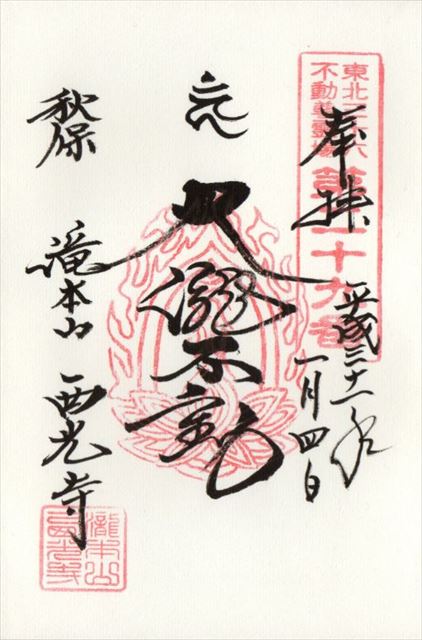 東北三十六
不動尊霊場
第二十九番
奉拝
平成三十一年
一月四日
大瀧不動
秋保
滝本山
西光寺
瀧本山
西光寺